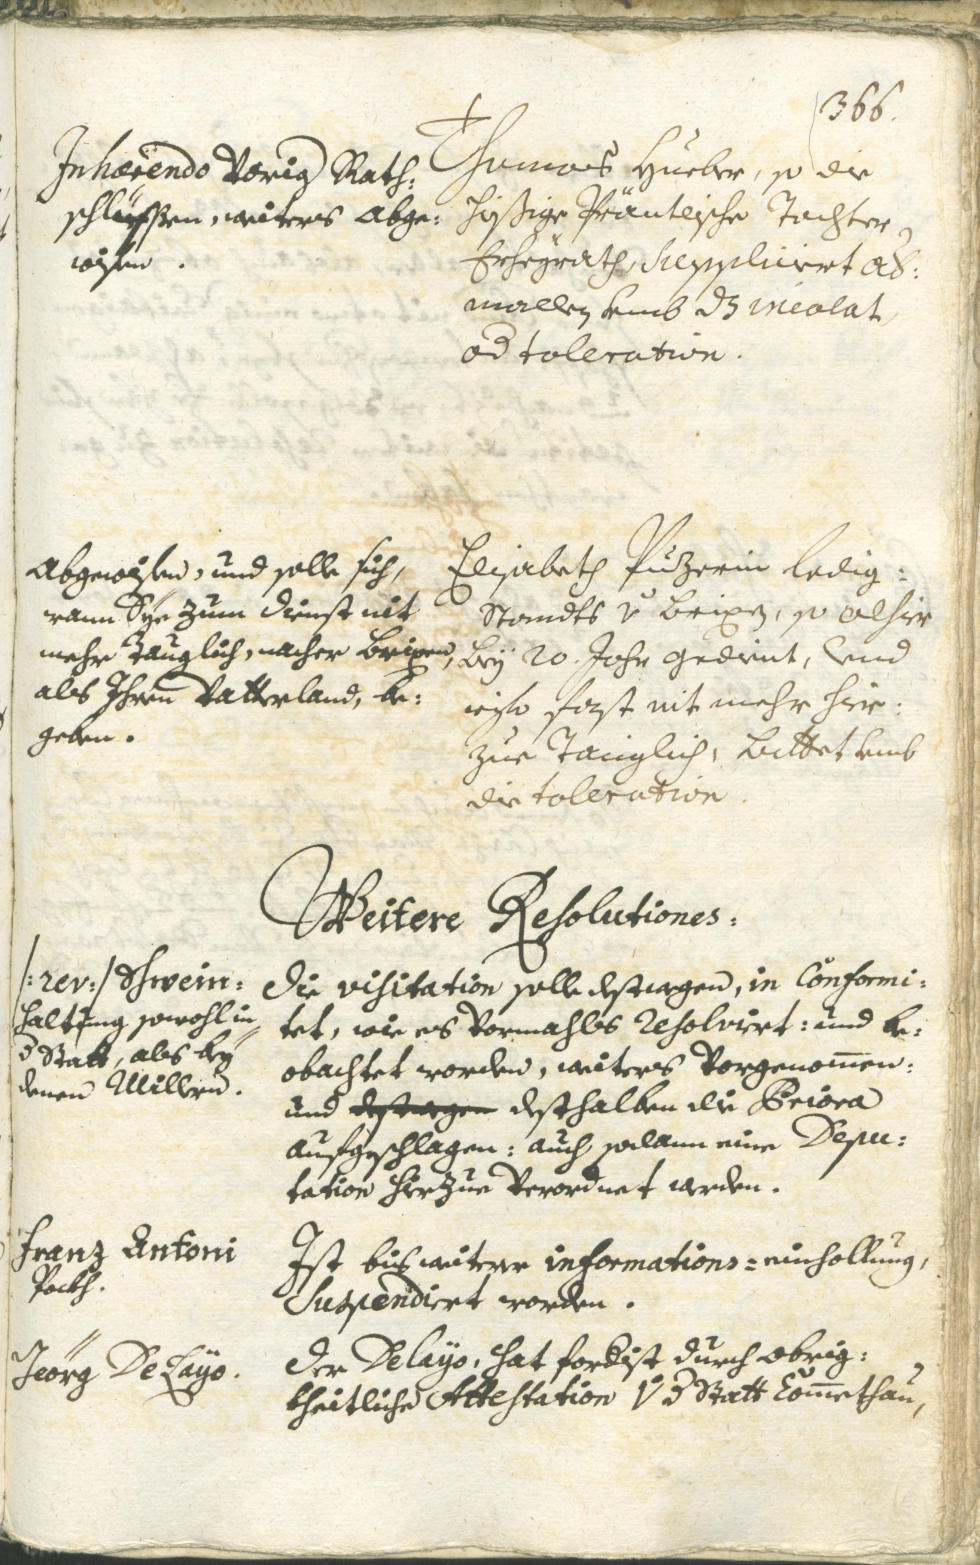 366.
Inhærendo Vorig Rath:
schlüssen, weiters abge:
wisen.
Thomas Hueber, so die
hissige Präntlische Tochter
Erheÿrath, Supplicirt aber:
mallen umb dz incolat
od toleration.
Abgewisen, und solle sich,
wann Sÿe zum dienst nit
mehr Tauglich, nacher Brixen,
als Ihren Vatterland, be:
geben.
Elisabeth Puzerin ledig:
Standts v. Brixen, so alhier
beÿ 20. Jahr gedient, Vnd
iezo fast nit mehr hier:
zue Tauglich, bittet umb
die toleration.
Weitere Resolutiones:
/:rev:/ Schwein:
haltung sowohl in
d Statt, als beÿ
denen Müllern.
Die visitation solle destwegen, in Conformi:
tet, wie es Vormahls resolvirt: und be:
obachtet worden, weiters Vorgenom̅en:
und destwegen desthalben die Priora
aufgeschlagen: auch sodann eine Depu:
tation hierzue Verordnet werden.
Franz Antoni
Pockh.
Ist bis weitere informations=einhollung,
Suspendiert worden.
Georg DeLaÿo.
Der Delaÿo, hat fordist durch obrig:
kheitliche Attestation v d Statt Com̅ethau,